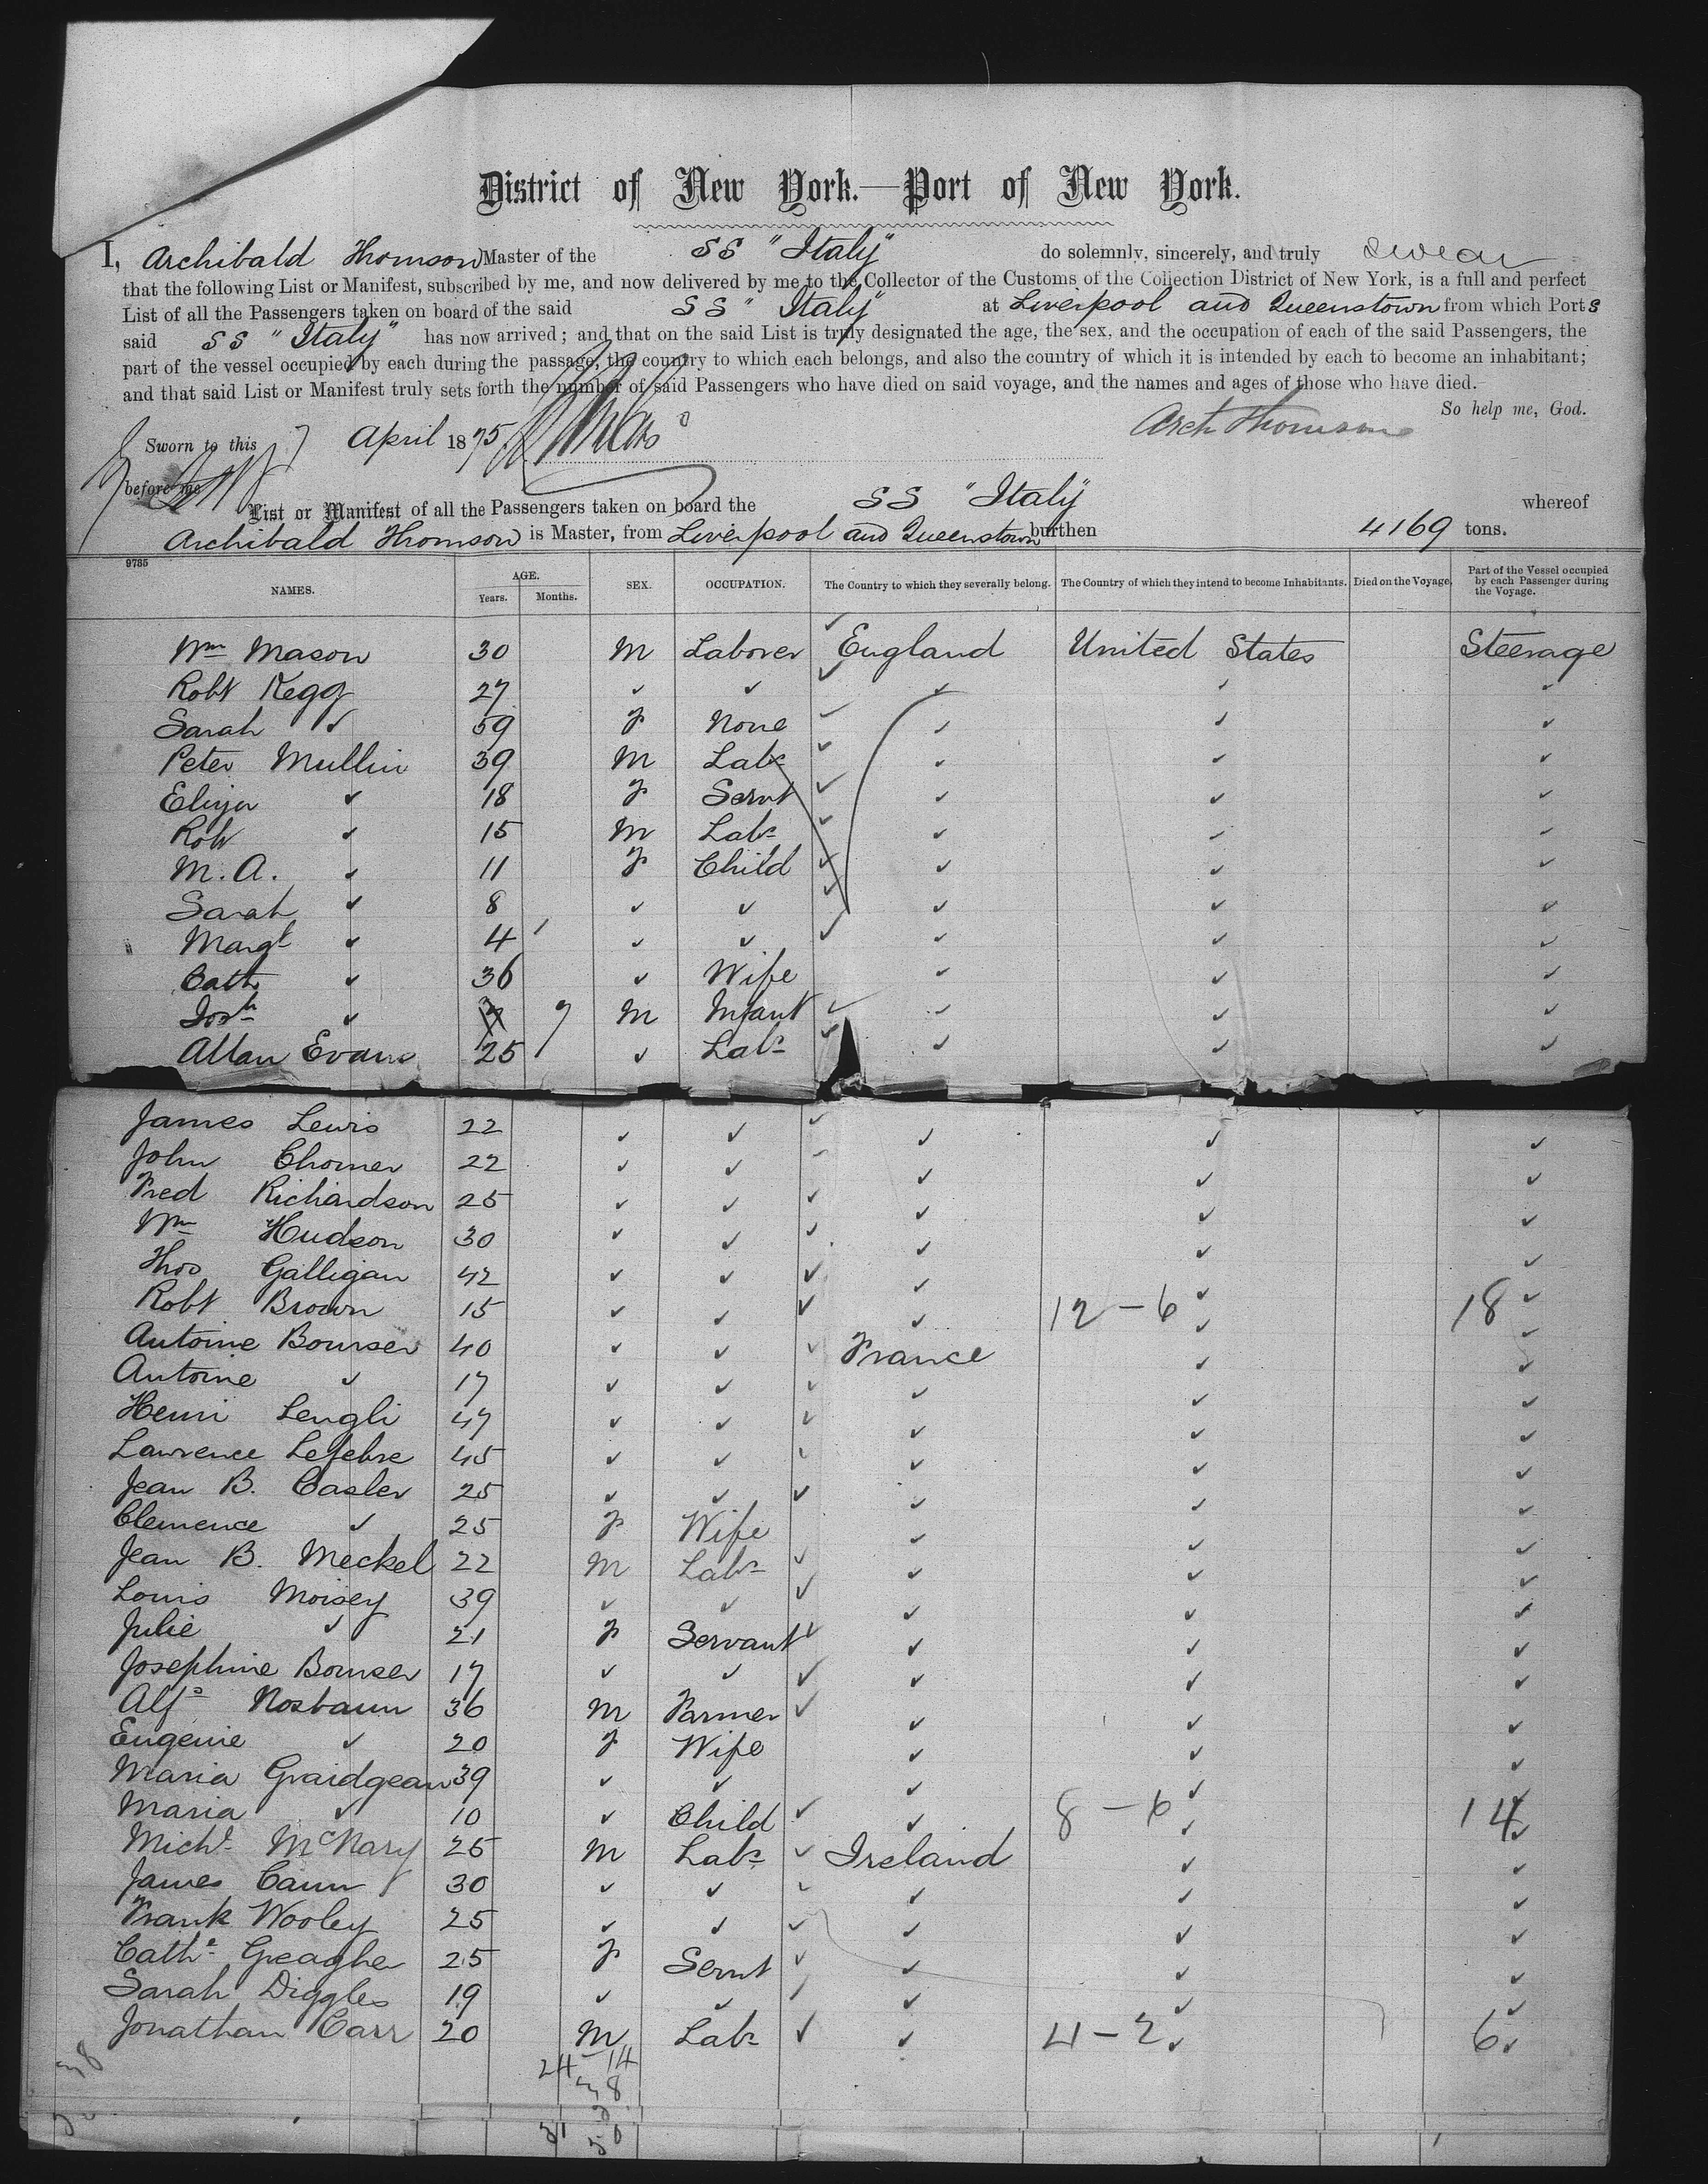 District of New York.—Port of New York.
I, Archibald Thomson Master of the SS "Italy" do solemnly, sincerely, and truly swear
that the following List or Manifest, subscribed by me, and now delivered by me to the Collector of the Customs of the Collection District of New York, is a full and perfect
List of all the Passengers taken on board of the said SS "Italy" at Liverpool and Queenstown from which Ports
said SS "Italy" has now arrived; and that on the said List is truly designated the age, the sex, and the occupation of each of the said Passengers, the
part of the vessel occupied by each during the passage, the country to which each belongs, and also the country of which it is intended by each to become an inhabitant;
and that said List or Manifest truly sets forth the number of said Passengers who have died on said voyage, and the names and ages of those who have died.
So help me, God.
Sworn to this 7 April 1875 Arch Thomson
before me
List or Manifest of all the Passengers taken on board the SS "Italy" whereof
Archibald Thomson is Master, from Liverpool and Queenstown burthen 4169 tons.
9785
NAMES. AGE. Years. Months. SEX. OCCUPATION. The Country to which they severally belong. The Country of which they intend to become Inhabitants. Died on the Voyage. Part of the Vessel occupied by each Passenger during the Voyage.
Wm Mason 30 M Laborer England United States Steerage
Robt Kegg 27 " " " " "
Sarah " 59 F None " " "
Peter Mullin 39 M Labr " " "
Eliza " 18 F Servt " " "
Robt " 15 M Labr " " "
M.A. " 11 F Child " " "
Sarah " 8 " " " " "
Margt " 4 " " " " "
Cath " 36 " Wife " " "
Josh " 7 M Infant " " "
Allan Evans 25 " Labr " " "
James Lewis 22 " " " " "
John Chomer 22 " " " " "
Fred Richardson 25 " " " " "
Wm Hudson 30 " " " " "
Thos Galligan 42 " " " " "
Robt Brown 15 " " " 12-6 " 18 "
Antoine Bourser 40 " " France " "
Antoine " 17 " " " " "
Henri Lengli 47 " " " " "
Lawrence Lefebre 45 " " " " "
Jean B. Casler 25 " " " " "
Clemence " 25 F Wife " " "
Jean B. Meckel 22 M Labr " " "
Louis Moisey 39 " " " " "
Julie " 21 F Servant " " "
Josephine Bourser 17 " " " " "
Alfs Nosbaum 36 M Farmer " " "
Eugenie " 20 F Wife " " "
Maria Graidgean 39 " " " " "
Maria " 10 " Child " 8-6 " 14 "
Michl McNary 25 M Labr Ireland " "
James Cann 30 " " " " "
Frank Wooley 25 " " " " "
Cathe Greagher 25 F Servt " " "
Sarah Diggles 19 " " " " "
Jonathan Carr 20 M Labr " 4-2 " 6 "
24 14
38
38